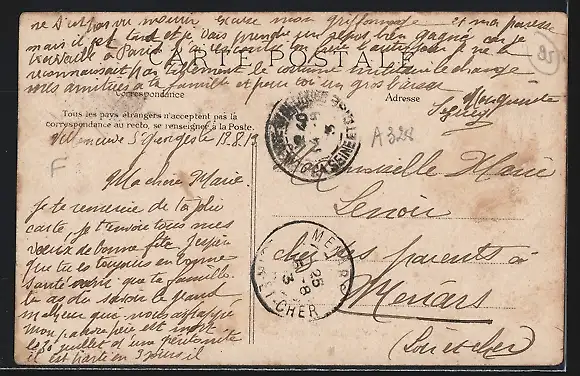 ne s'est pas vu mourir Excuse mon griffonnage et ma paresse
mais il est tard et je vais prendre un repos bien gagné car je
travaille à Paris
reconnaissait pas tellement le costume militaire le change
mes amitiées à ta famille et pour toi un gros baiser
CARTE POSTALE
Correspondance
Adresse
Marguerite
Tous les pays étrangers n'acceptent pas la
correspondance au recto, se renseigner à la Poste.
Villeneuve St Georges le 13.8.15
Ma chère Marie
Je te remercie de ta jolie
carte, je t'envoie tous mes
vœux de bonne fête, j'espère
que tu es toujours en bonne
santé ainsi que ta famille.
tu as du savoir le grand
malheur qui nous a frappé
mon pauvre père est mort
le 30 juillet d'une péritonite
il est parti en 3 jours il
95
A 322
F
Mademoiselle Marie
Lenoir
chez ses parents à
Menars
(Loir et cher)
MENARS
25
8
LOIR-ET-CHER